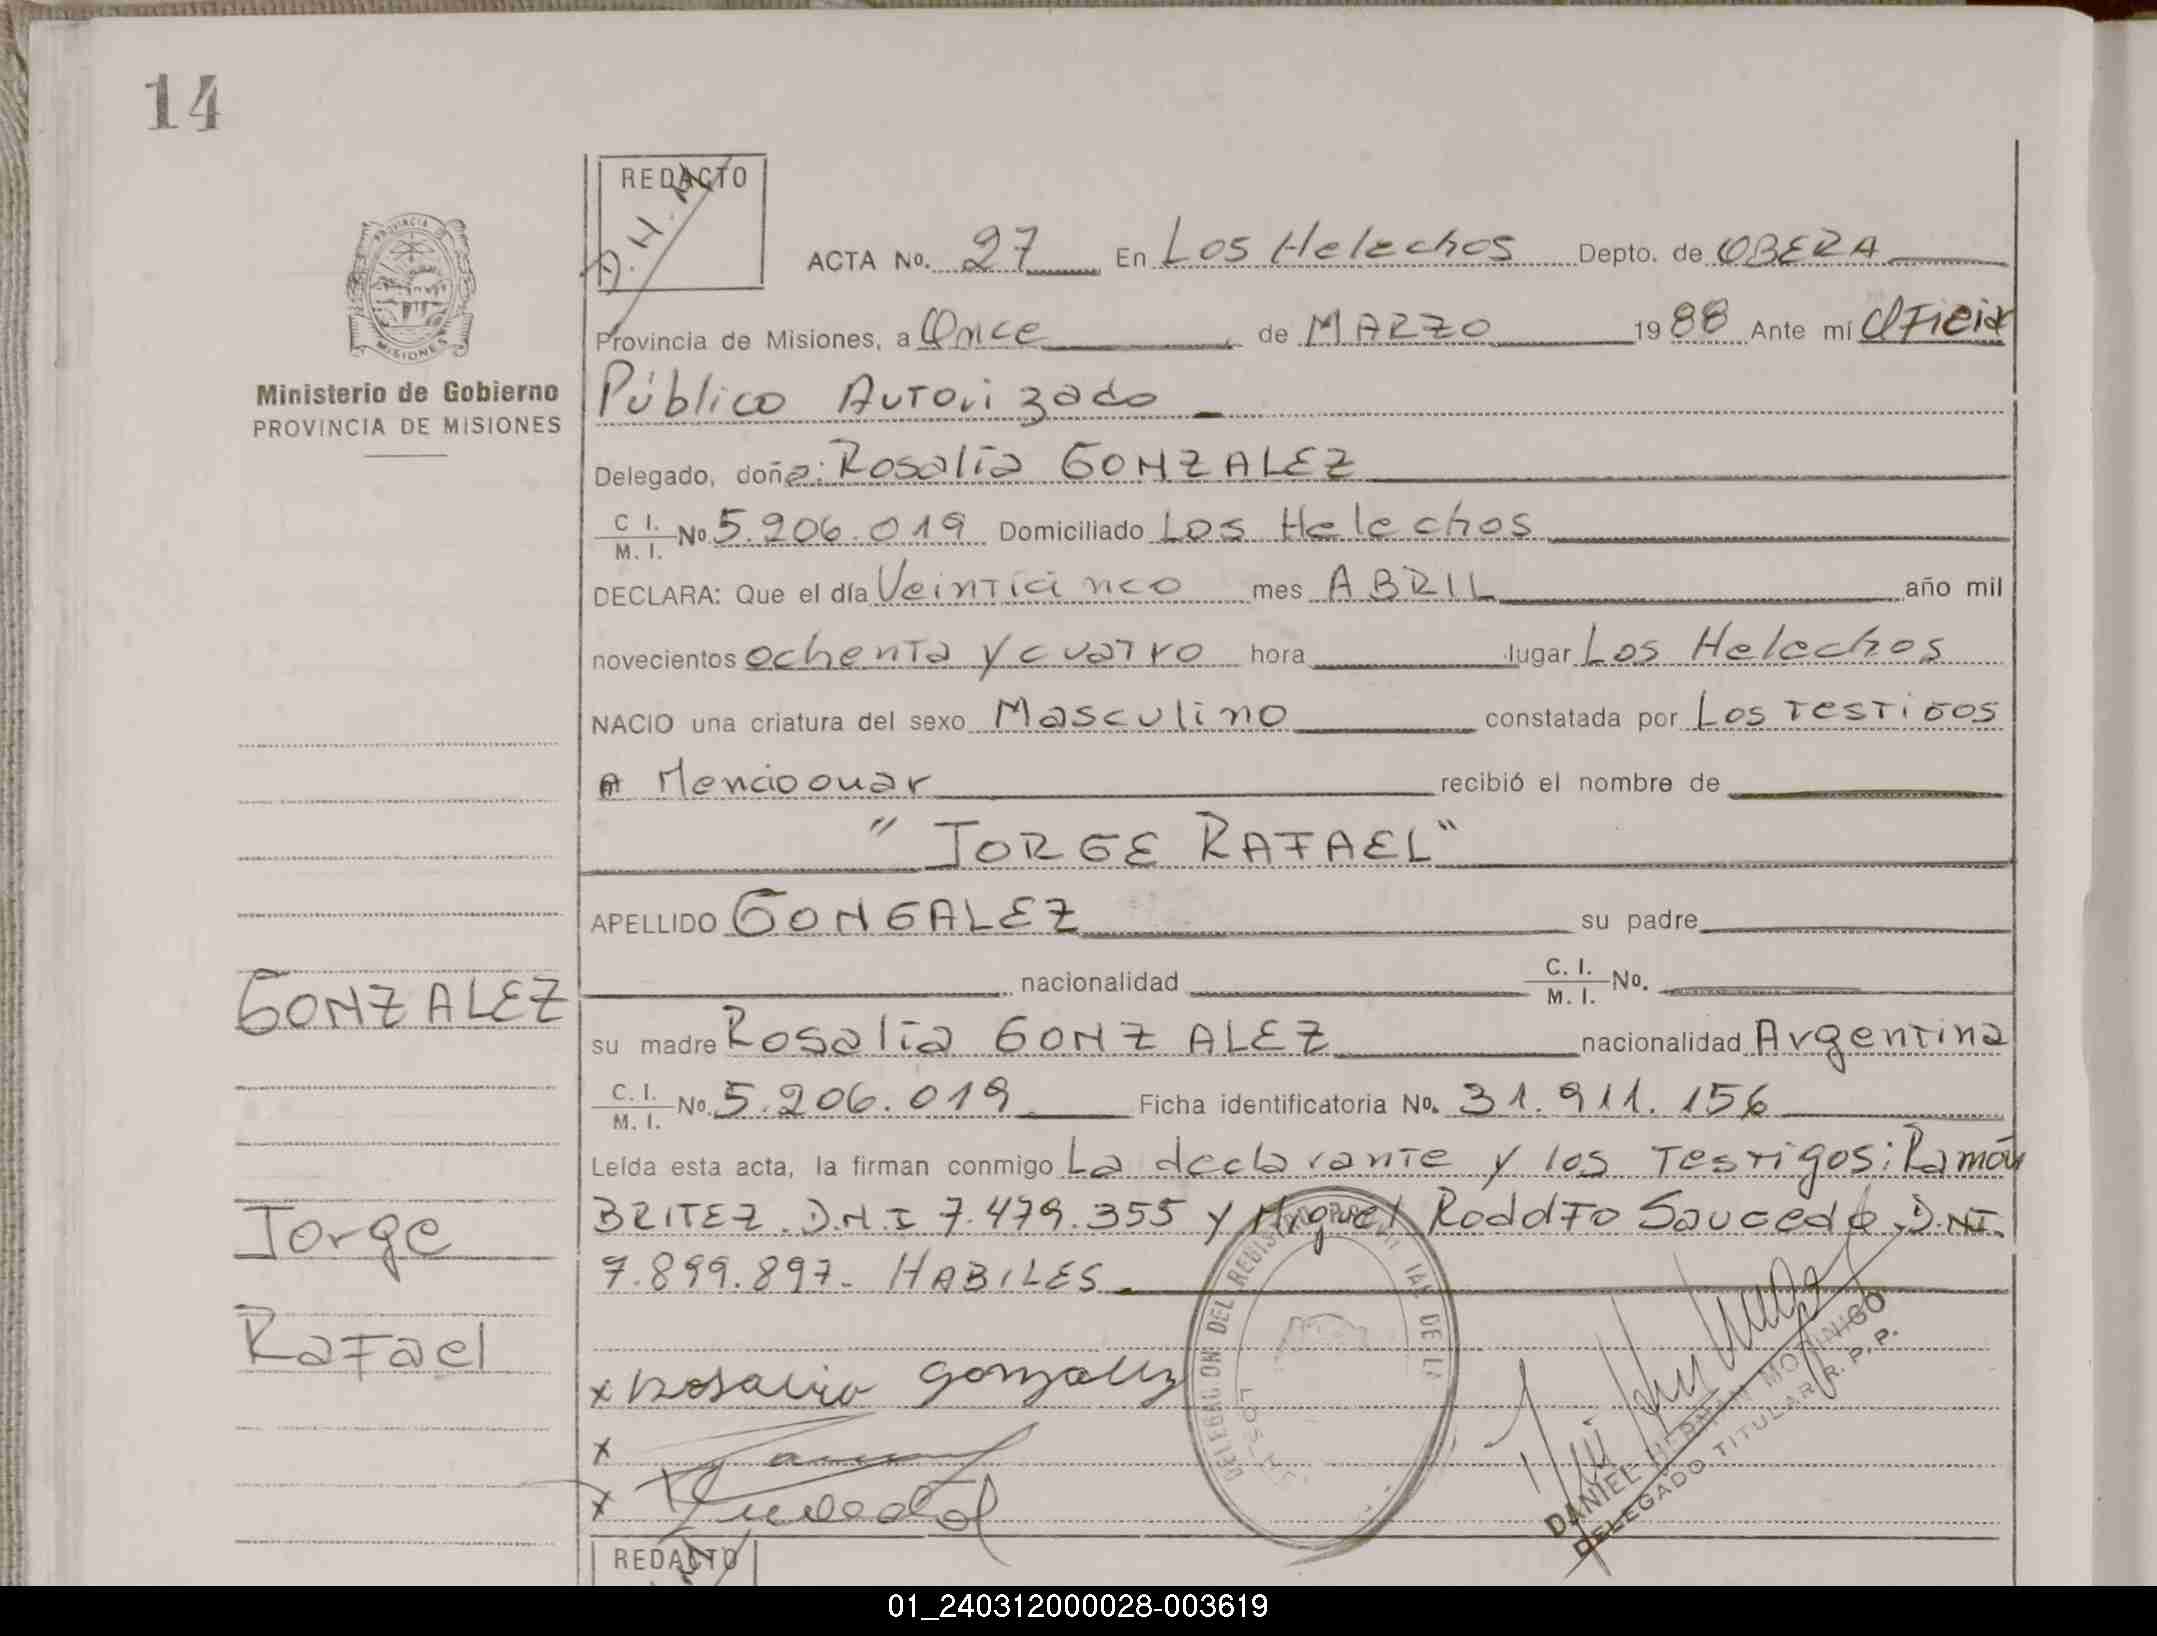 14
REDACTO
D.H.M
ACTA No. 27 En Los Helechos Depto. de OBERA
Provincia de Misiones, a Once de MARZO 1988 Ante mí Oficial
Público Autorizado
Delegado, doña: Rosalía GONZALEZ
C I. / M. I. No 5.206.019 Domiciliado Los Helechos
DECLARA: Que el día Veinticinco mes ABRIL año mil
novecientos ochenta y cuatro hora lugar Los Helechos
NACIO una criatura del sexo Masculino constatada por Los Testigos
A Mencioonar recibió el nombre de
"JORGE RAFAEL"
APELLIDO GONGALEZ su padre
nacionalidad C. I. / M. I. No.
su madre Rosalía GONZALEZ nacionalidad Argentina
C. I. / M. I. No. 5.206.019 Ficha identificatoria No. 31.911.156
Leída esta acta, la firman conmigo La declarante y los Testigos: Ramón
BRITEZ. D.N.I 7.479.355 y Miguel Rodolfo Saucedo, D.NI.
7.899.897- HABILES
x Rosalia gonzalez
x
x
DELEGACION DEL REGISTRO DE LOS
DANIEL HERNAN MORINIGO
DELEGADO TITULAR R. P. P.
REDACTO
PROVINCIA DE
MISIONES
Ministerio de Gobierno
PROVINCIA DE MISIONES
GONZALEZ
Jorge
Rafael
01_240312000028-003619